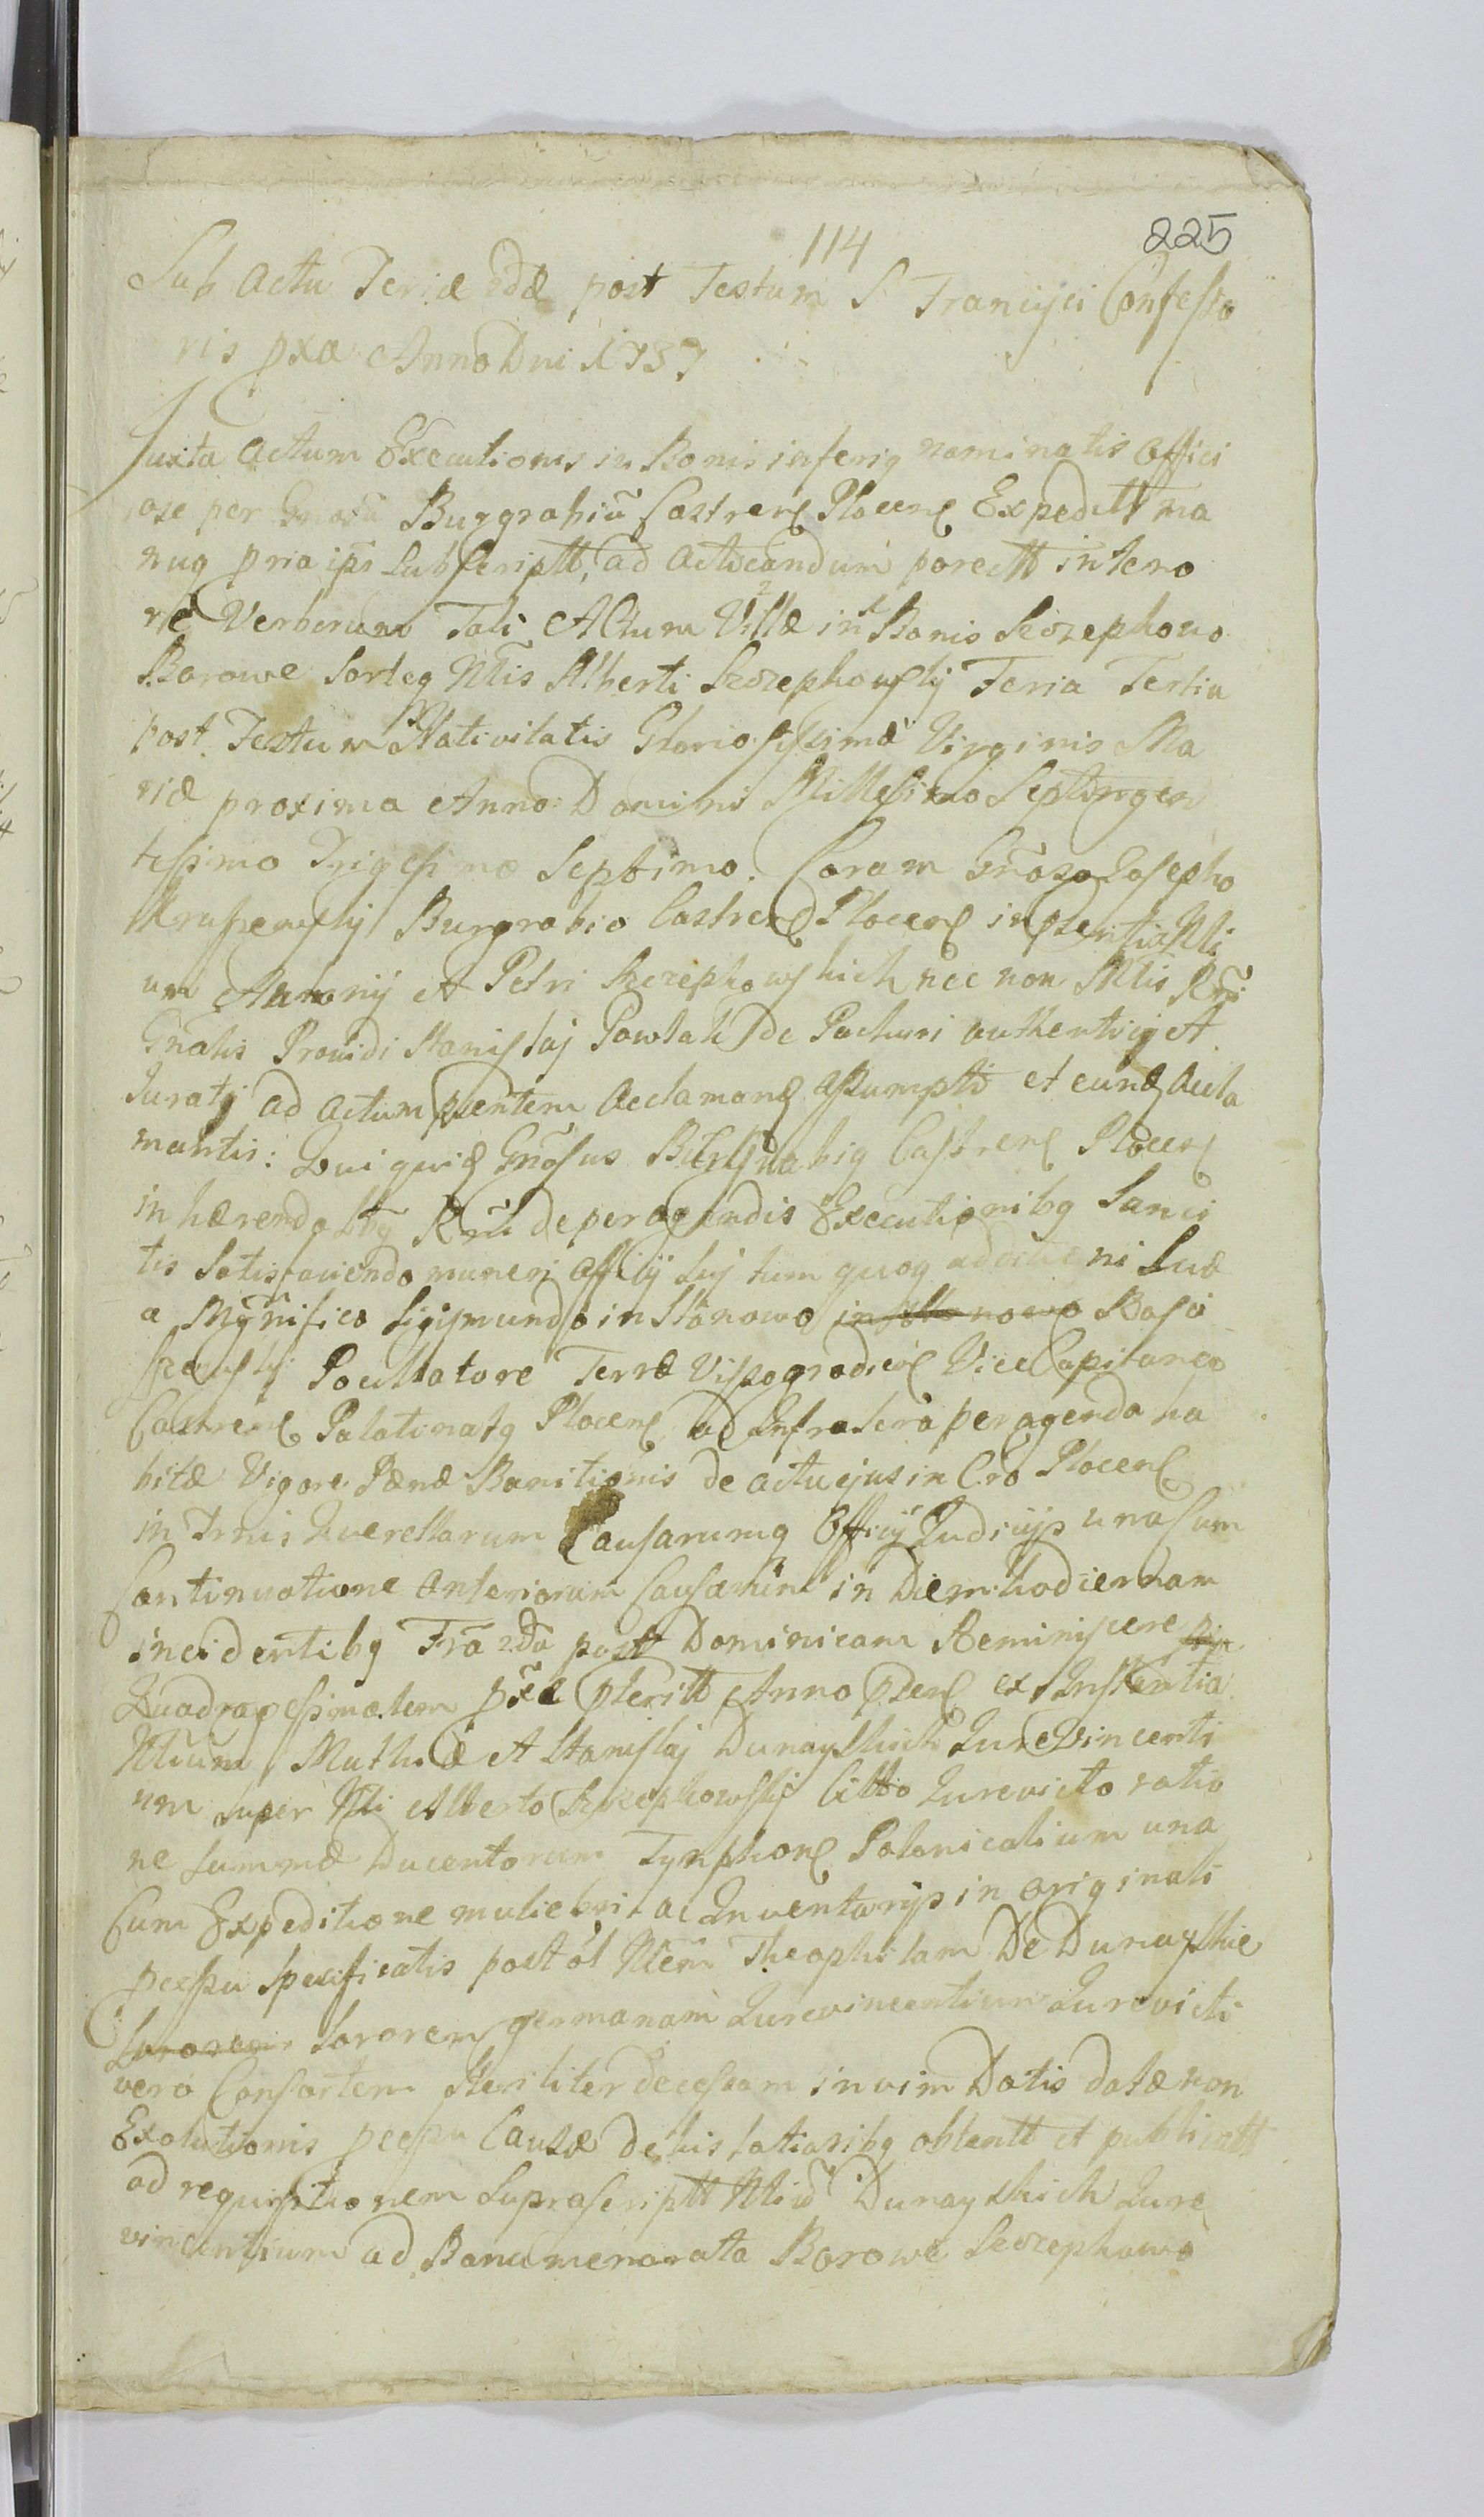 114
225
Sub Actu Feriæ 2dæ post Festum S Francisci Confesso
ris pxa Anno Dni 1737
Juxta Actum Executionis in Bonis inferiq nominatis Offici
ose per Gnosũ Burgrabiũ Castren Plocen Expeditt ma
nuq pria ipĩ Subscriptt, ad Acticandum porectt in teno
re Verborum Tali Actum Villæ in Bonis Szczephowo
Borowe Sorteq Nlis Alberti Szczephowskj Feria Tertia
post Festum Nativitatis Gloriosissimæ Virginis Ma
riæ proxima Anno Domini Millesimo Septingen
tesimo Trigesimo Septimo. Coram Gnõso Josepho
Burgrabio Castren Plocen in pntia Nli
um Antonij et Petri Szczephowskich nec non Mtis Rnĩ
Gnalis Providi Stanislaj Pawlak De Pachuri authentici et
Juratj ad Actum pntem Acclamand Assumpti et eund Accla
mantis: Qui quid Gnõsus Burgrabiq Castren Plocen
in hærendo Rnĩ de peragendis Executionibq Sanci
tis Satisfaciendo muneri Officij Suj tum quoq additioni Suæ
a Mgnifico Sigismundo in Stanowo in Stanowo
Pocillatore Terræ Vissogrodien Vice Capitaneo
Castren Palatinatq Plocen ad Infrascra peragenda ha
bitæ Vigore Pænæ Banitionis de actu ejus in Cro Plocen
in Trnis Querellarum Causarumq Officij Judicijs una Cum
Continuatione Anteriorum Causarum in Diem hodiernam
incidentibq Fra 2da post Dominicam Reminiscere
Quadragesimalem pxa pteritt Anno pnen ex Instantia
Nlium Mathiæ et Stanislaj Dunayskich Jurevincenti
um super Nli Alberto Szczephowskj Citto Jurevicto ratio
ne Summæ Ducentorum Tynphon Polonicalium una
Cum Expeditione muliebri ac Inventarijs in originali
pcessu specificatis post ol Nlem Theophilam De Dunayskie
Sororem Sororem germanam Jurevincentium Jurevicti
vero Consortem steriliter decessam in vim Dotis datæ non
Exolutionis pcessu Causæ de his latioribq obtentt et publicatt
ad requisitionem Suprascriptt Nliũ Dunayskich Jure
vincentium ad Bona menorata Borowe Szczephowo